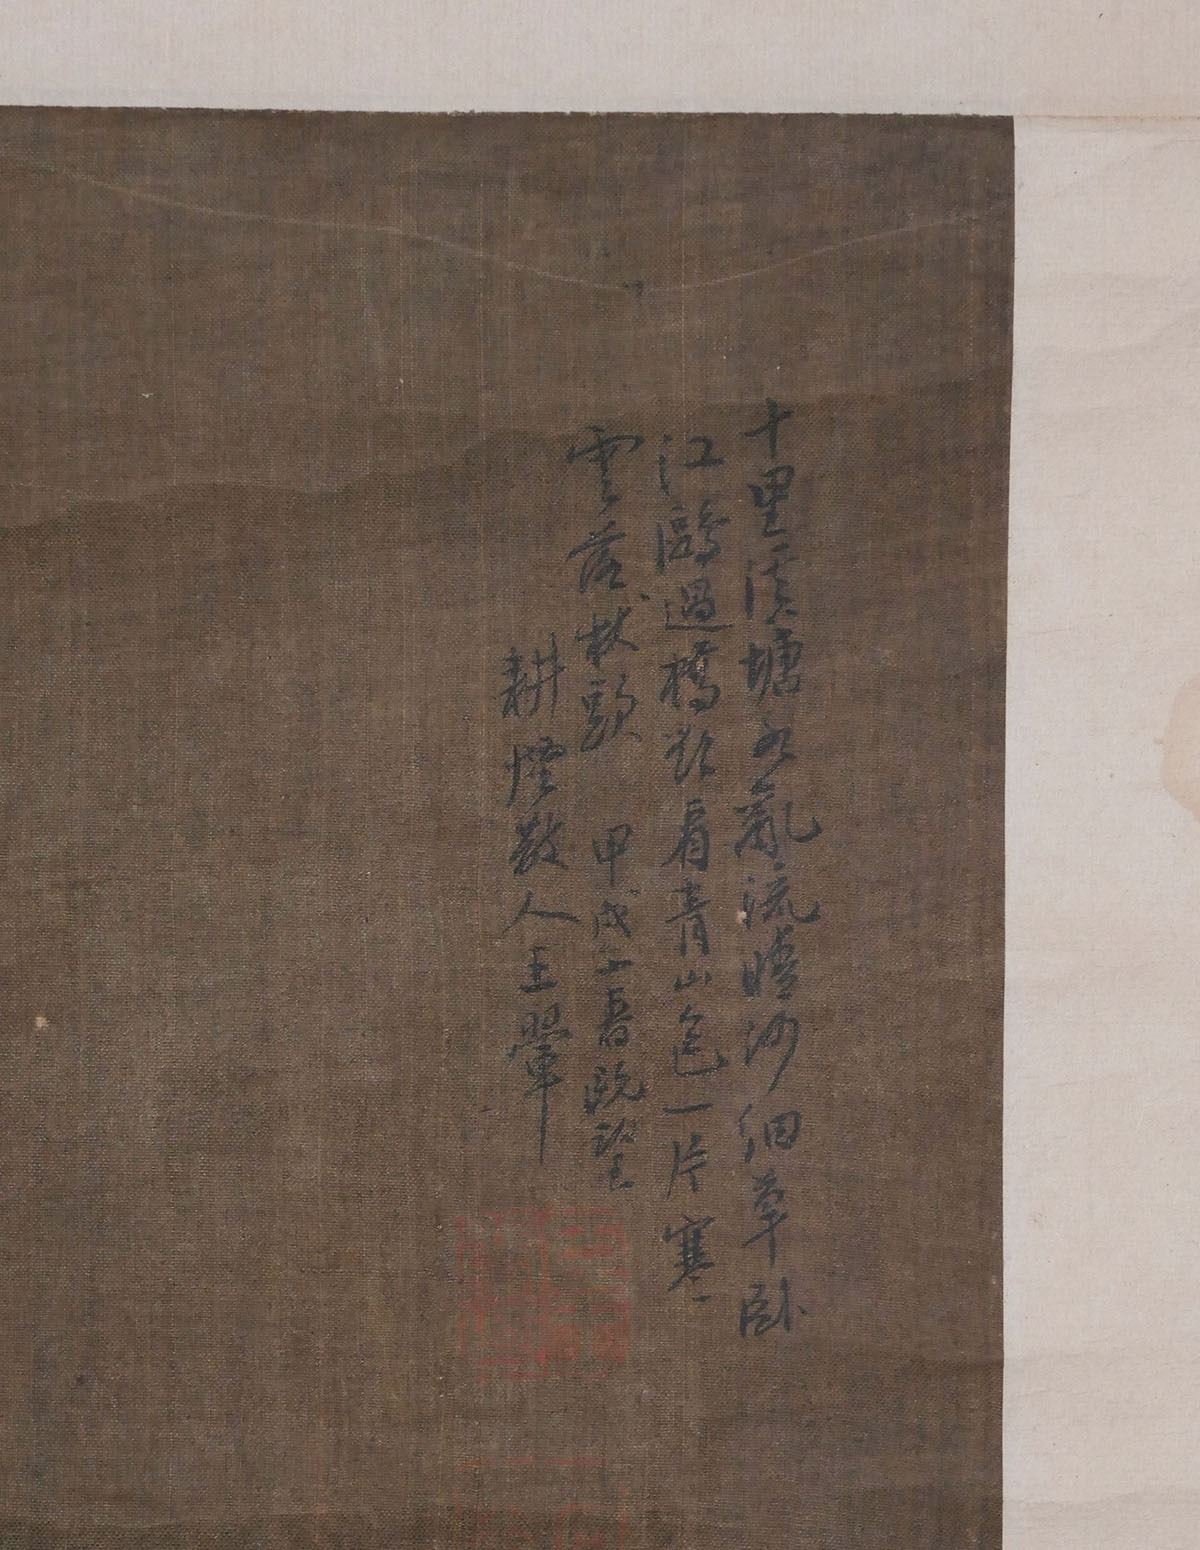 十里溪塘水亂流晴沙細草臥
江鷗過橋欲看青山色一片寒
雲落林頭 甲戌二春既望
耕煙散人王翬